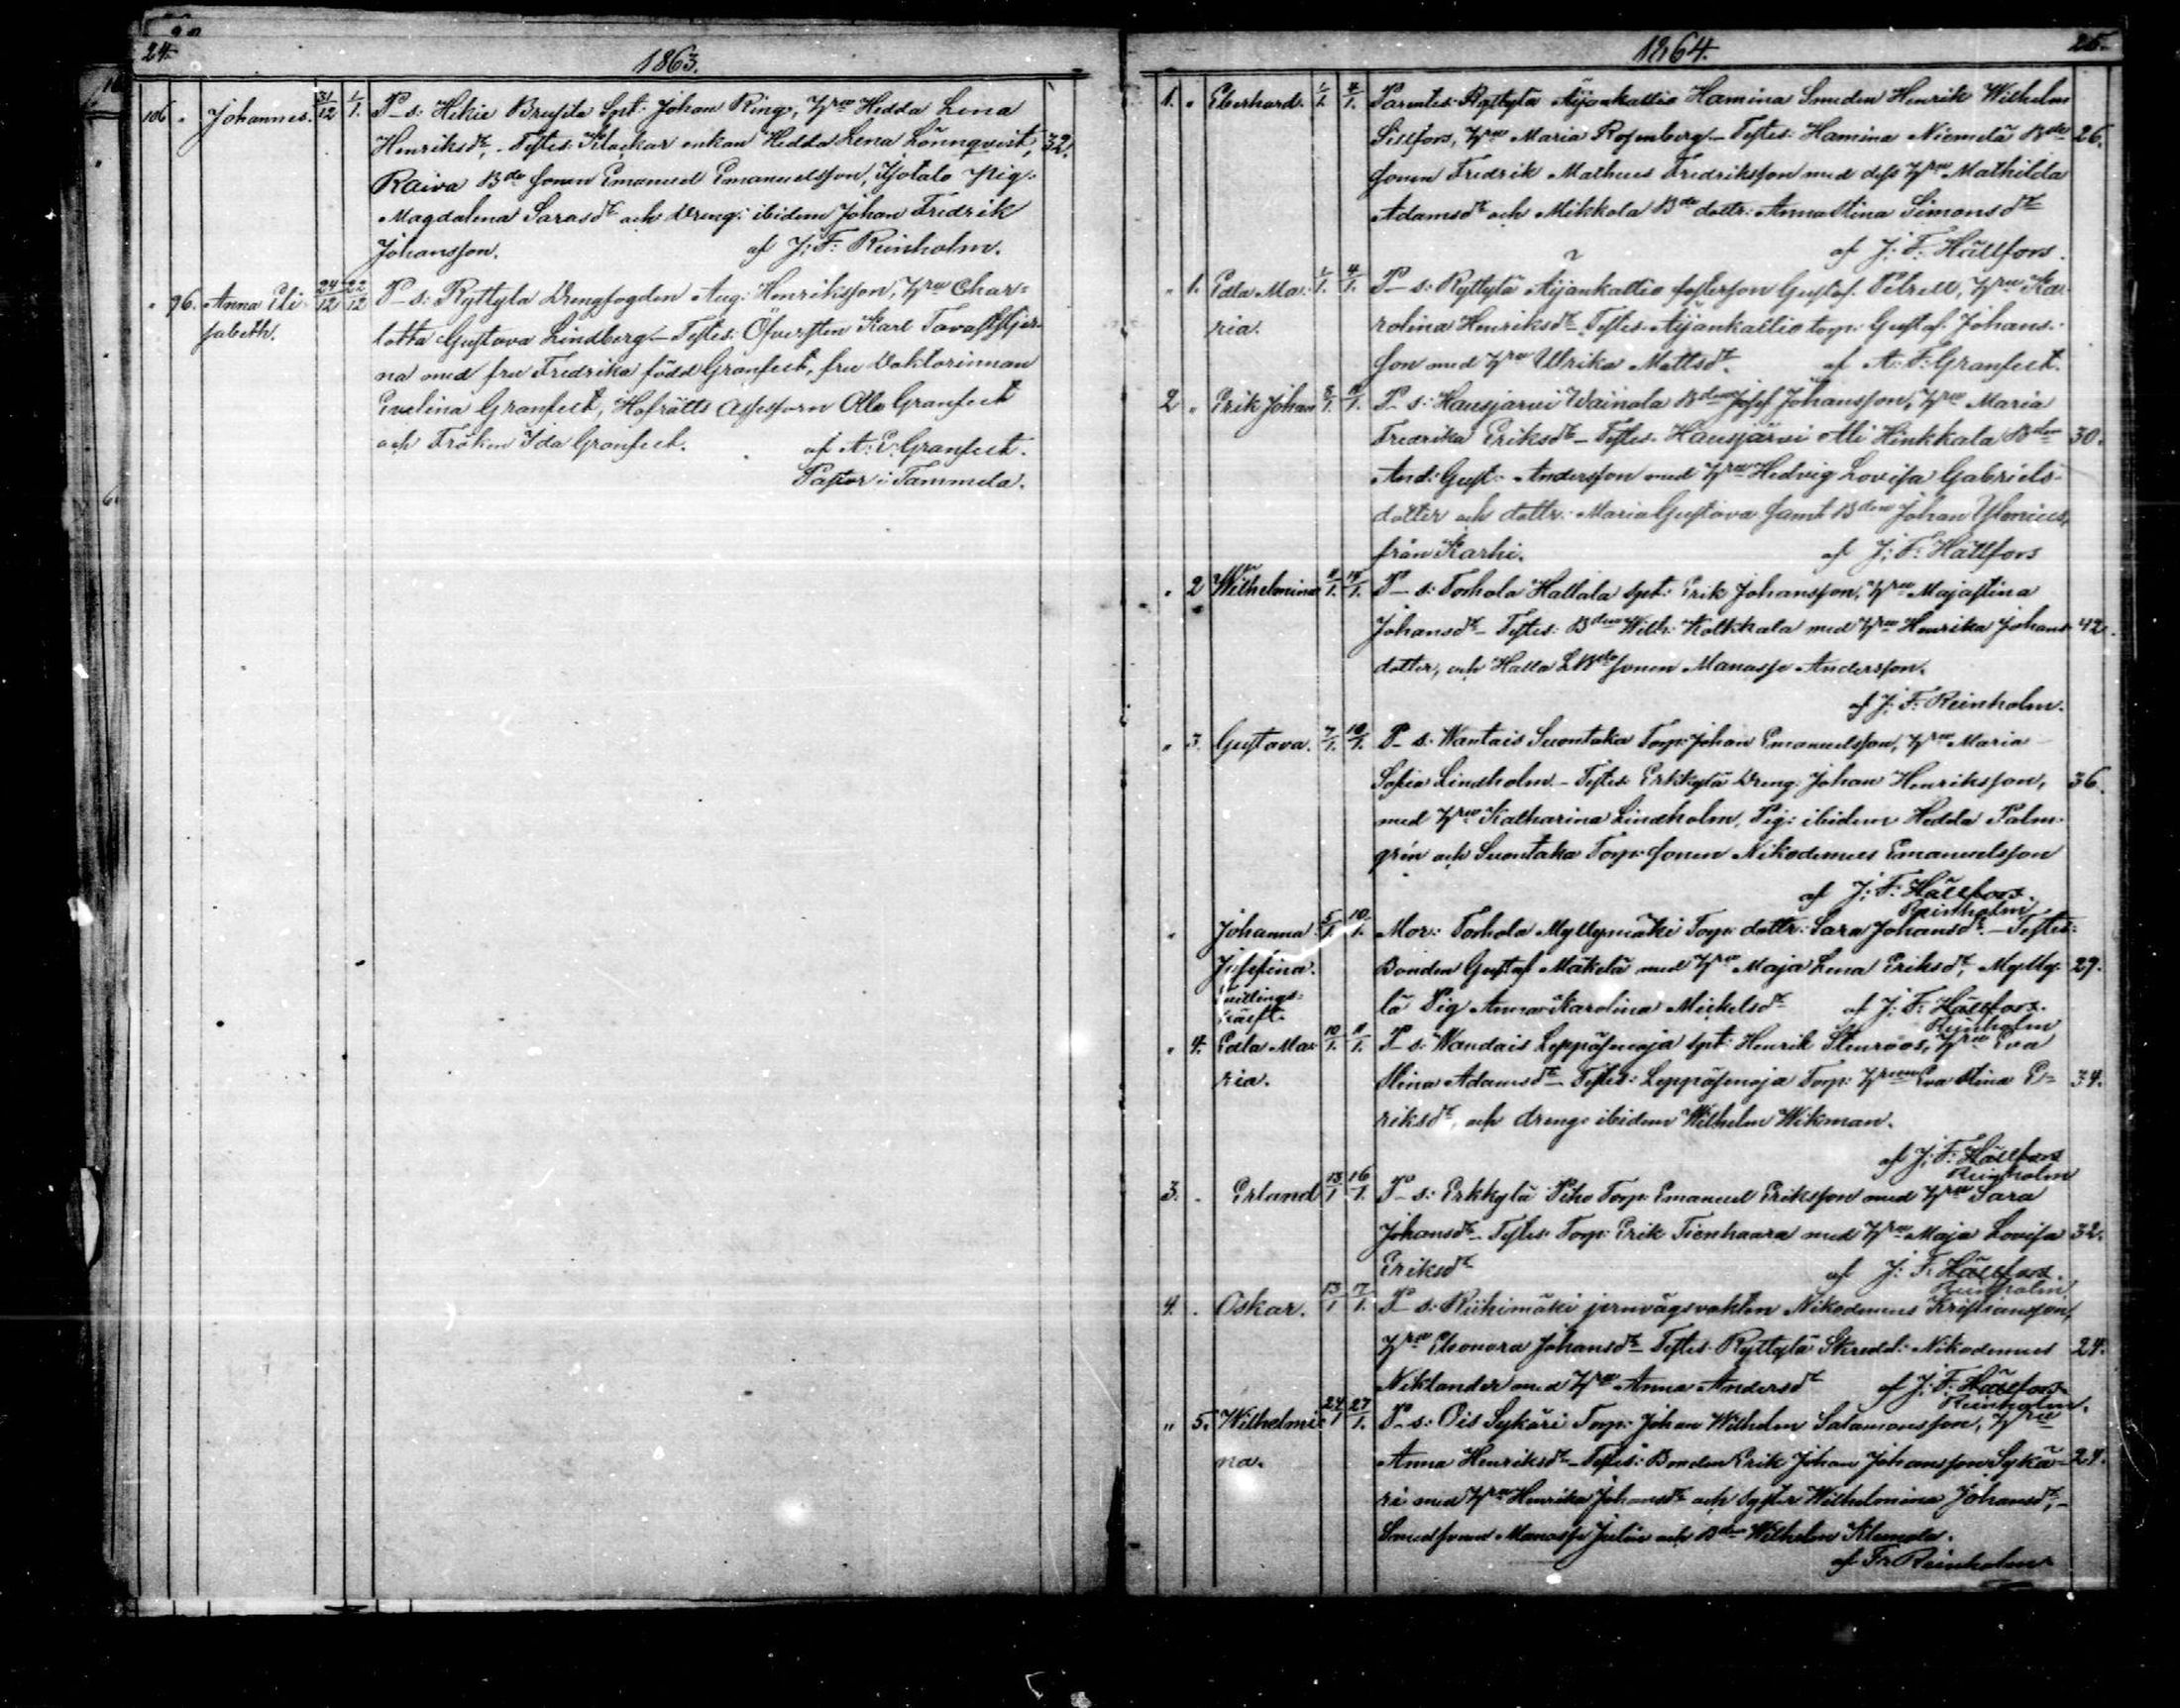 24.
1863.
106 " Johannes. 31/12 1/1. P_s: Hikie Brusila Spt: Johan Ring, Hru Hedda Lena
Henriksdr, - Testes: enkan Hedda Lena Lönnqvist, 32.
Raiva Bde sonen Emanuel Emanuelsson, pig:
Magdalena Sarasdr och Dreng: ibidem Johan Fredrik
Johansson. af J: F: Reinholm.
" 96. Anna Eli- 24/12 22/12 P_s: Ryttylä Drengfogden Aug: Henriksson, Hru Char=
sabeth. lotta Gustava Lindberg - Testes: Öfversten Karl Tavaststjer-
na med fru Fredrika född Granfelt, fru Doktorinnan
Evelina Granfelt, Hofrätts Assessorn Otto Granfelt
och Fröken Ida Granfelt. af A: F: Granfelt.
Pastor i Tammela.
1864. 25.
1. " Eberhard. 4/1. Parentes: Ryttylä Äijänkallio Hamina Smeden Henrik Wilhelm
Hru Maria Rosenberg. - Testes: Hamina Niemelä Bde 26.
sonen Fredrik Matheus Fredriksson med dess Hru Mathilda
Adamsdr och Mikkola Bde dottr: Anna Stina Simonsdr
af J: F: Hällfors.
" 1. Edla Ma- 1/1. 4/1. P_s: Ryttylä Äijänkallio fosterson Gustaf Petrell, Hru Ka-
ria. rolina Henriksdr - Testes: Äijänkallio torp: Gustaf Johans-
son med Hru Ulrika Mattsdr. af A: F: Granfelt.
2 " Erik Johan P_s: Hausjärvi Wainola Bden Josef Johansson, Hru Maria
Fredrika Eriksdr - Testes: Hausjärvi Ali Hinkkala Bden 30.
And: Gust: Andersson med Hru Hedvig Lovisa Gabriels-
dotter och dottr: Maria Gustava samt Bden Johan Ylenius,
från Karhi. af J: F: Hällfors
" 2 Wilhelmina P_s: Torhola Hallala Spt: Erik Johansson, Hru Majastina
Johansdr - Testes: Bden Wilh: Kolkkala med Hru Henrika Johans- 42.
dotter, och Halla Bde sonen Manasse Andersson.
af J: F: Reinholm.
" 3. Gustava. 7/1. 10/1. P_s: Wantais Suontaka Torp: Johan Emanuelsson, Hru Maria
Sofia Lindholm. - Testes: Erkkylä Dreng: Johan Henriksson, 36.
med Hru Katharina Lindholm, Pig: ibidem Hedda Palm-
grén och Suontaka Torp: sonen Nikodemus Emanuelsson
af J: F: Hällfors.
Reinholm
" Johanna 5/1. 10/1. Mor: Torhola Myllymäki Torp: dottr: Sara Johansdr. - Testes:
Josefina. Bonden Gustaf Mäkelä med Hru Maja Lena Eriksdr, Mylly- 29.
lä Pig Anna Karolina Mickelsdr af J: F: Hällfors.
Reinholm
" 4. Edla Ma- 10/1. 11/1. P_s: Wandais Leppäsenoja Spt: Henrik Stenroos, Hru Eva
ria. Stina Adamsdr - Testes: Leppäsenoja Torp: Hrun Eva Stina E= 34.
riksdr, och dreng: ibidem Wilhelm Wikman.
af J: F: Hällfors
Reinholm
3. . Erland 13/1 16/1. P_s: Erkkylä Piho Torp: Emanuel Eriksson med Hru Sara
Johansdr - Testes: Torp: Erik Tienhaara med Hru Maja Lovisa 32.
Eriksdr af J: F: Hällfors.
Reinholm
4. . Oskar. 13/1 17/1. P_s: Riihimäki jernvägsvakten Nikodemus Kristiansson,
Hru Eleonora Johansdr - Testes: Ryttylä Skredd: Nikodemus 24.
Niklander med Hru Anna Andersdr af J: F: Hällfors
Reinholm.
" 5. Wilhelmi- 24/1 27/1. P_s: Ois Sykäri Torp: Johan Wilhelm Salamonsson, Hru
na. Anna Henriksdr - Testes: Bonden Erik Johan Johansson Sykä- 24.
ri med Hru Henrika Johansdr och syster Wilhelmina Johansdr,
Smedsonen Manasse Julin och Bden Wilhelm Klemola.
af Fr Reinholm